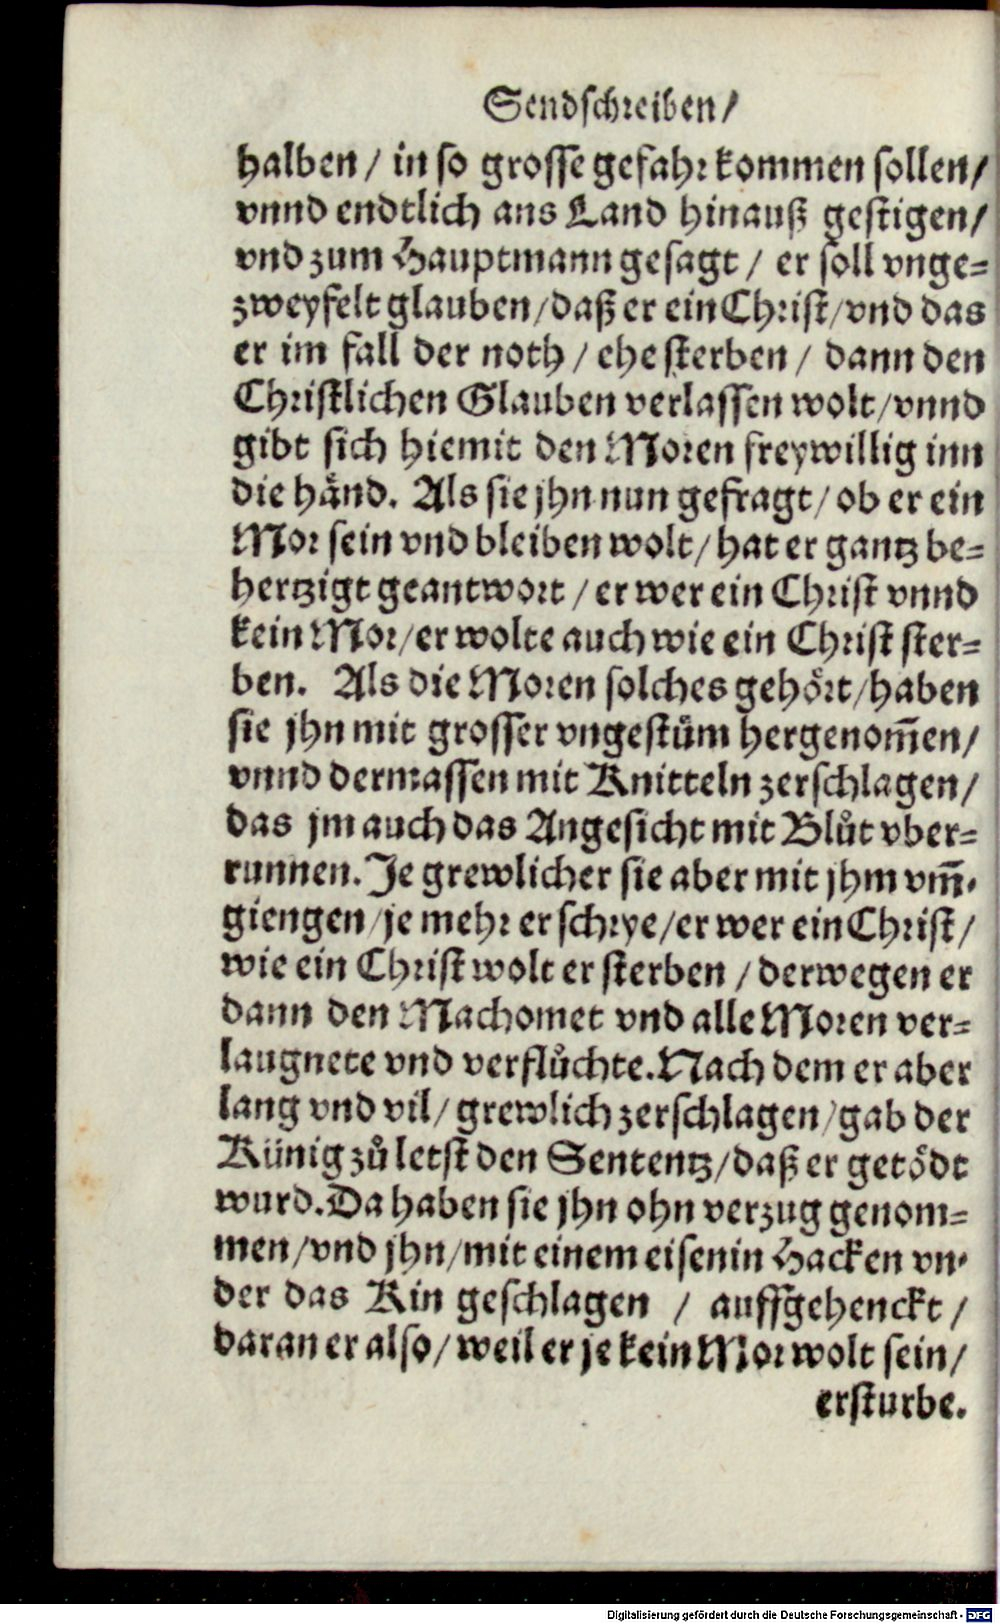 Sendschreiben/
halben / in so grosse gefahr kommen sollen/
vnnd endtlich ans Land hinauß gestigen/
vnd zum Hauptmann gesagt / er soll vnge-
zweyfelt glauben/daß er ein Christ/vnd das
er im fall der noth / ehe sterben / dann den
Christlichen Glauben verlassen wolt/vnnd
gibt sich hiemit den Moren freywillig inn
die haͤnd. Als sie jhn nun gefragt/ ob er ein
Mor sein vnd bleiben wolt/ hat er gantz be-
hertzigt geantwort / er wer ein Christ vnnd
kein Mor/er wolte auch wie ein Christ ster-
ben. Als die Moren solches gehoͤrt/haben
sie jhn mit grosser vngestuͤm hergenom̃en/
vnnd dermassen mit Knitteln zerschlagen/
das jm auch das Angesicht mit Bluͦt vber-
runnen. Je grewlicher sie aber mit jhm vm̃-
giengen/je mehr er schrye/er wer ein Christ/
wie ein Christ wolt er sterben / derwegen er
dann den Machomet vnd alle Moren ver-
laugnete vnd verfluͦchte. Nach dem er aber
lang vnd vil/ grewlich zerschlagen/gab der
Künig zuͦ letst den Sententz/daß er getoͤdt
wurd. Da haben sie jhn ohn verzug genom-
men/vnd jhn/mit einem eisenin Hacken vn-
der das Kin geschlagen / auffgehenckt /
daran er also/ weil er je kein Mor wolt sein/
ersturbe.
Digitalisierung gefördert durch die Deutsche Forschungsgemeinschaft - DFG